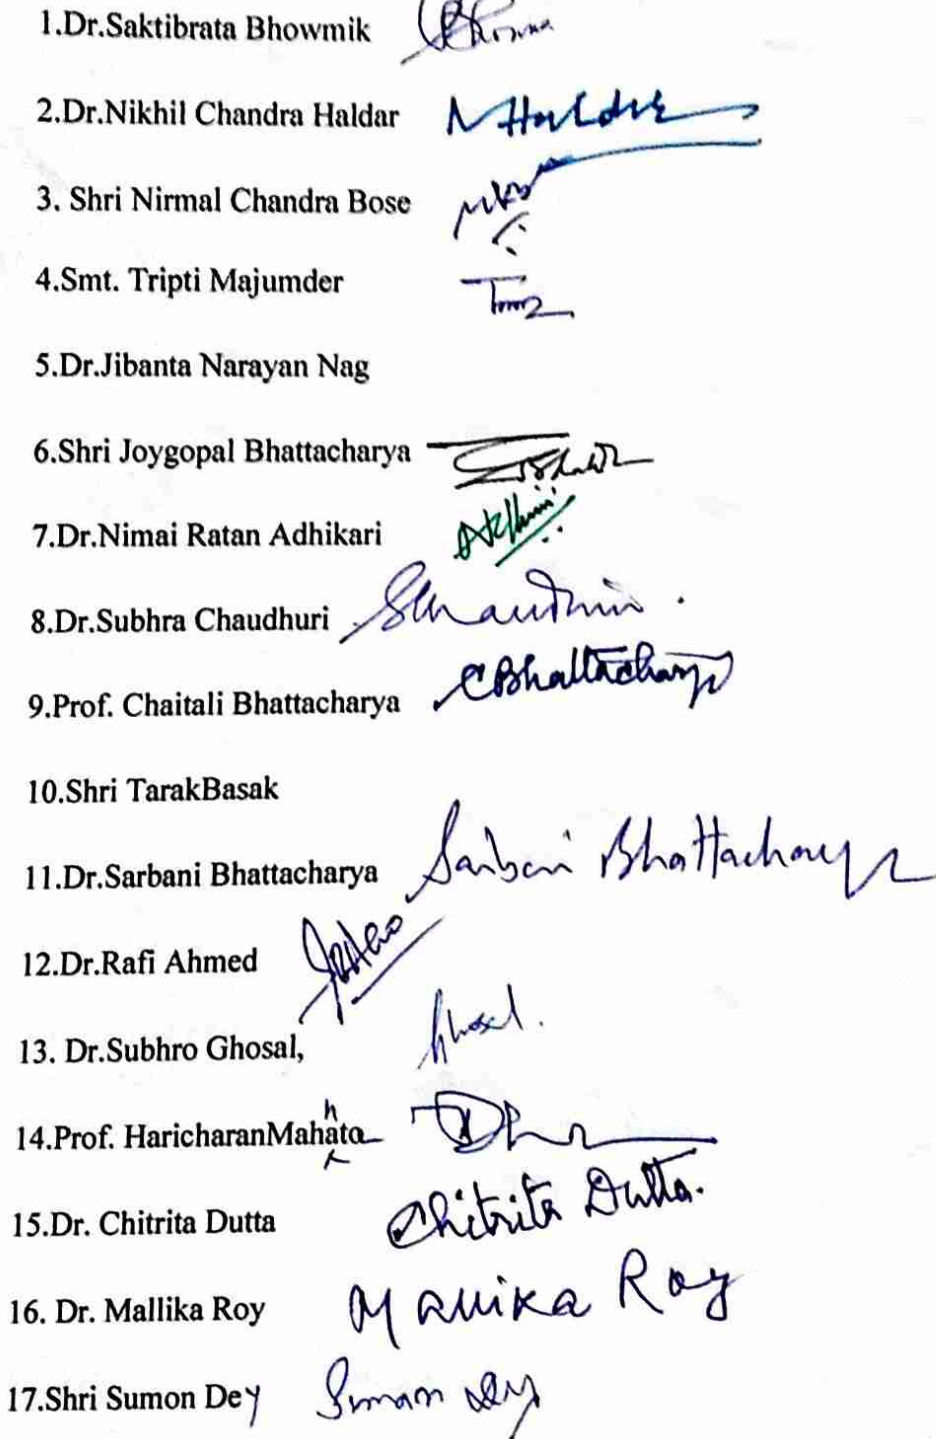 1.Dr.Saktibrata Bhowmik
2.Dr.Nikhil Chandra Haldar NHaldar
3. Shri Nirmal Chandra Bose
4.Smt. Tripti Majumder
5.Dr.Jibanta Narayan Nag
6.Shri Joygopal Bhattacharya
7.Dr.Nimai Ratan Adhikari
8.Dr.Subhra Chaudhuri SChaudhuri.
9.Prof. Chaitali Bhattacharya CBhattacharya
10.Shri TarakBasak
11.Dr.Sarbani Bhattacharya Sarbani Bhattacharya
12.Dr.Rafi Ahmed
13. Dr.Subhro Ghosal, Ghosal.
14.Prof. HaricharanMahata
15.Dr. Chitrita Dutta Chitrita Dutta.
16. Dr. Mallika Roy Mallika Roy
17.Shri Sumon Dey Suman Dey